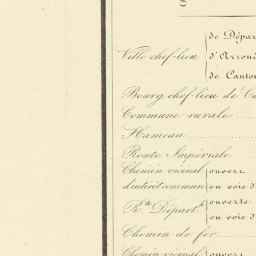 de Dépar
Ville chef-lieu d'Arrond
de Canton
Bourg chef-lieu de Ca
Commune rurale
Hameau
Route Impériale
Chemin vicinal ouvert
d'intérêt commun ou voie d
R.te Départ.le ouverte
ou voie d
Chemin de fer
Chemin vicinal ouvert